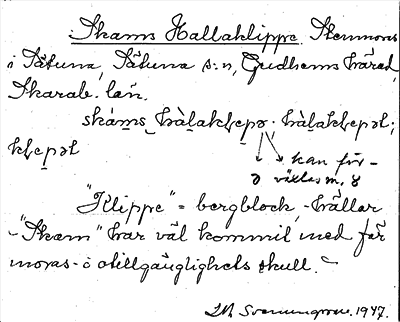 Skams Hallaklippe. Stenmons
i Sätuna, Sätuna s:n, Gudhems härad,
Skarab. län.
skáms hàlaklepə. hàlaklepət;
klepət
kan för-
ə växlas m. 8
"Klippe" = bergblock, - hällar
- "Skam" har väl kommit med för
moras- o otillgänglighets skull. -
1947.